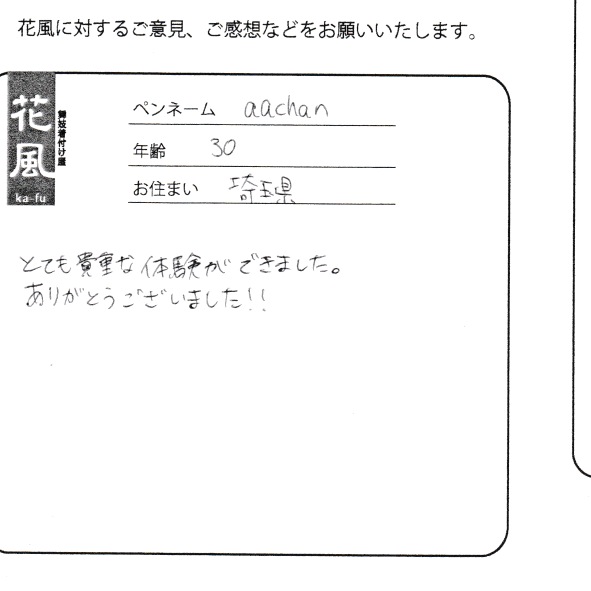 花風に対するご意見、ご感想などをお願いいたします。
花風
舞妓着付け屋
ka-fu
ペンネーム aachan
年齢 30
お住まい 埼玉県
とても貴重な体験ができました。
ありがとうございました!!